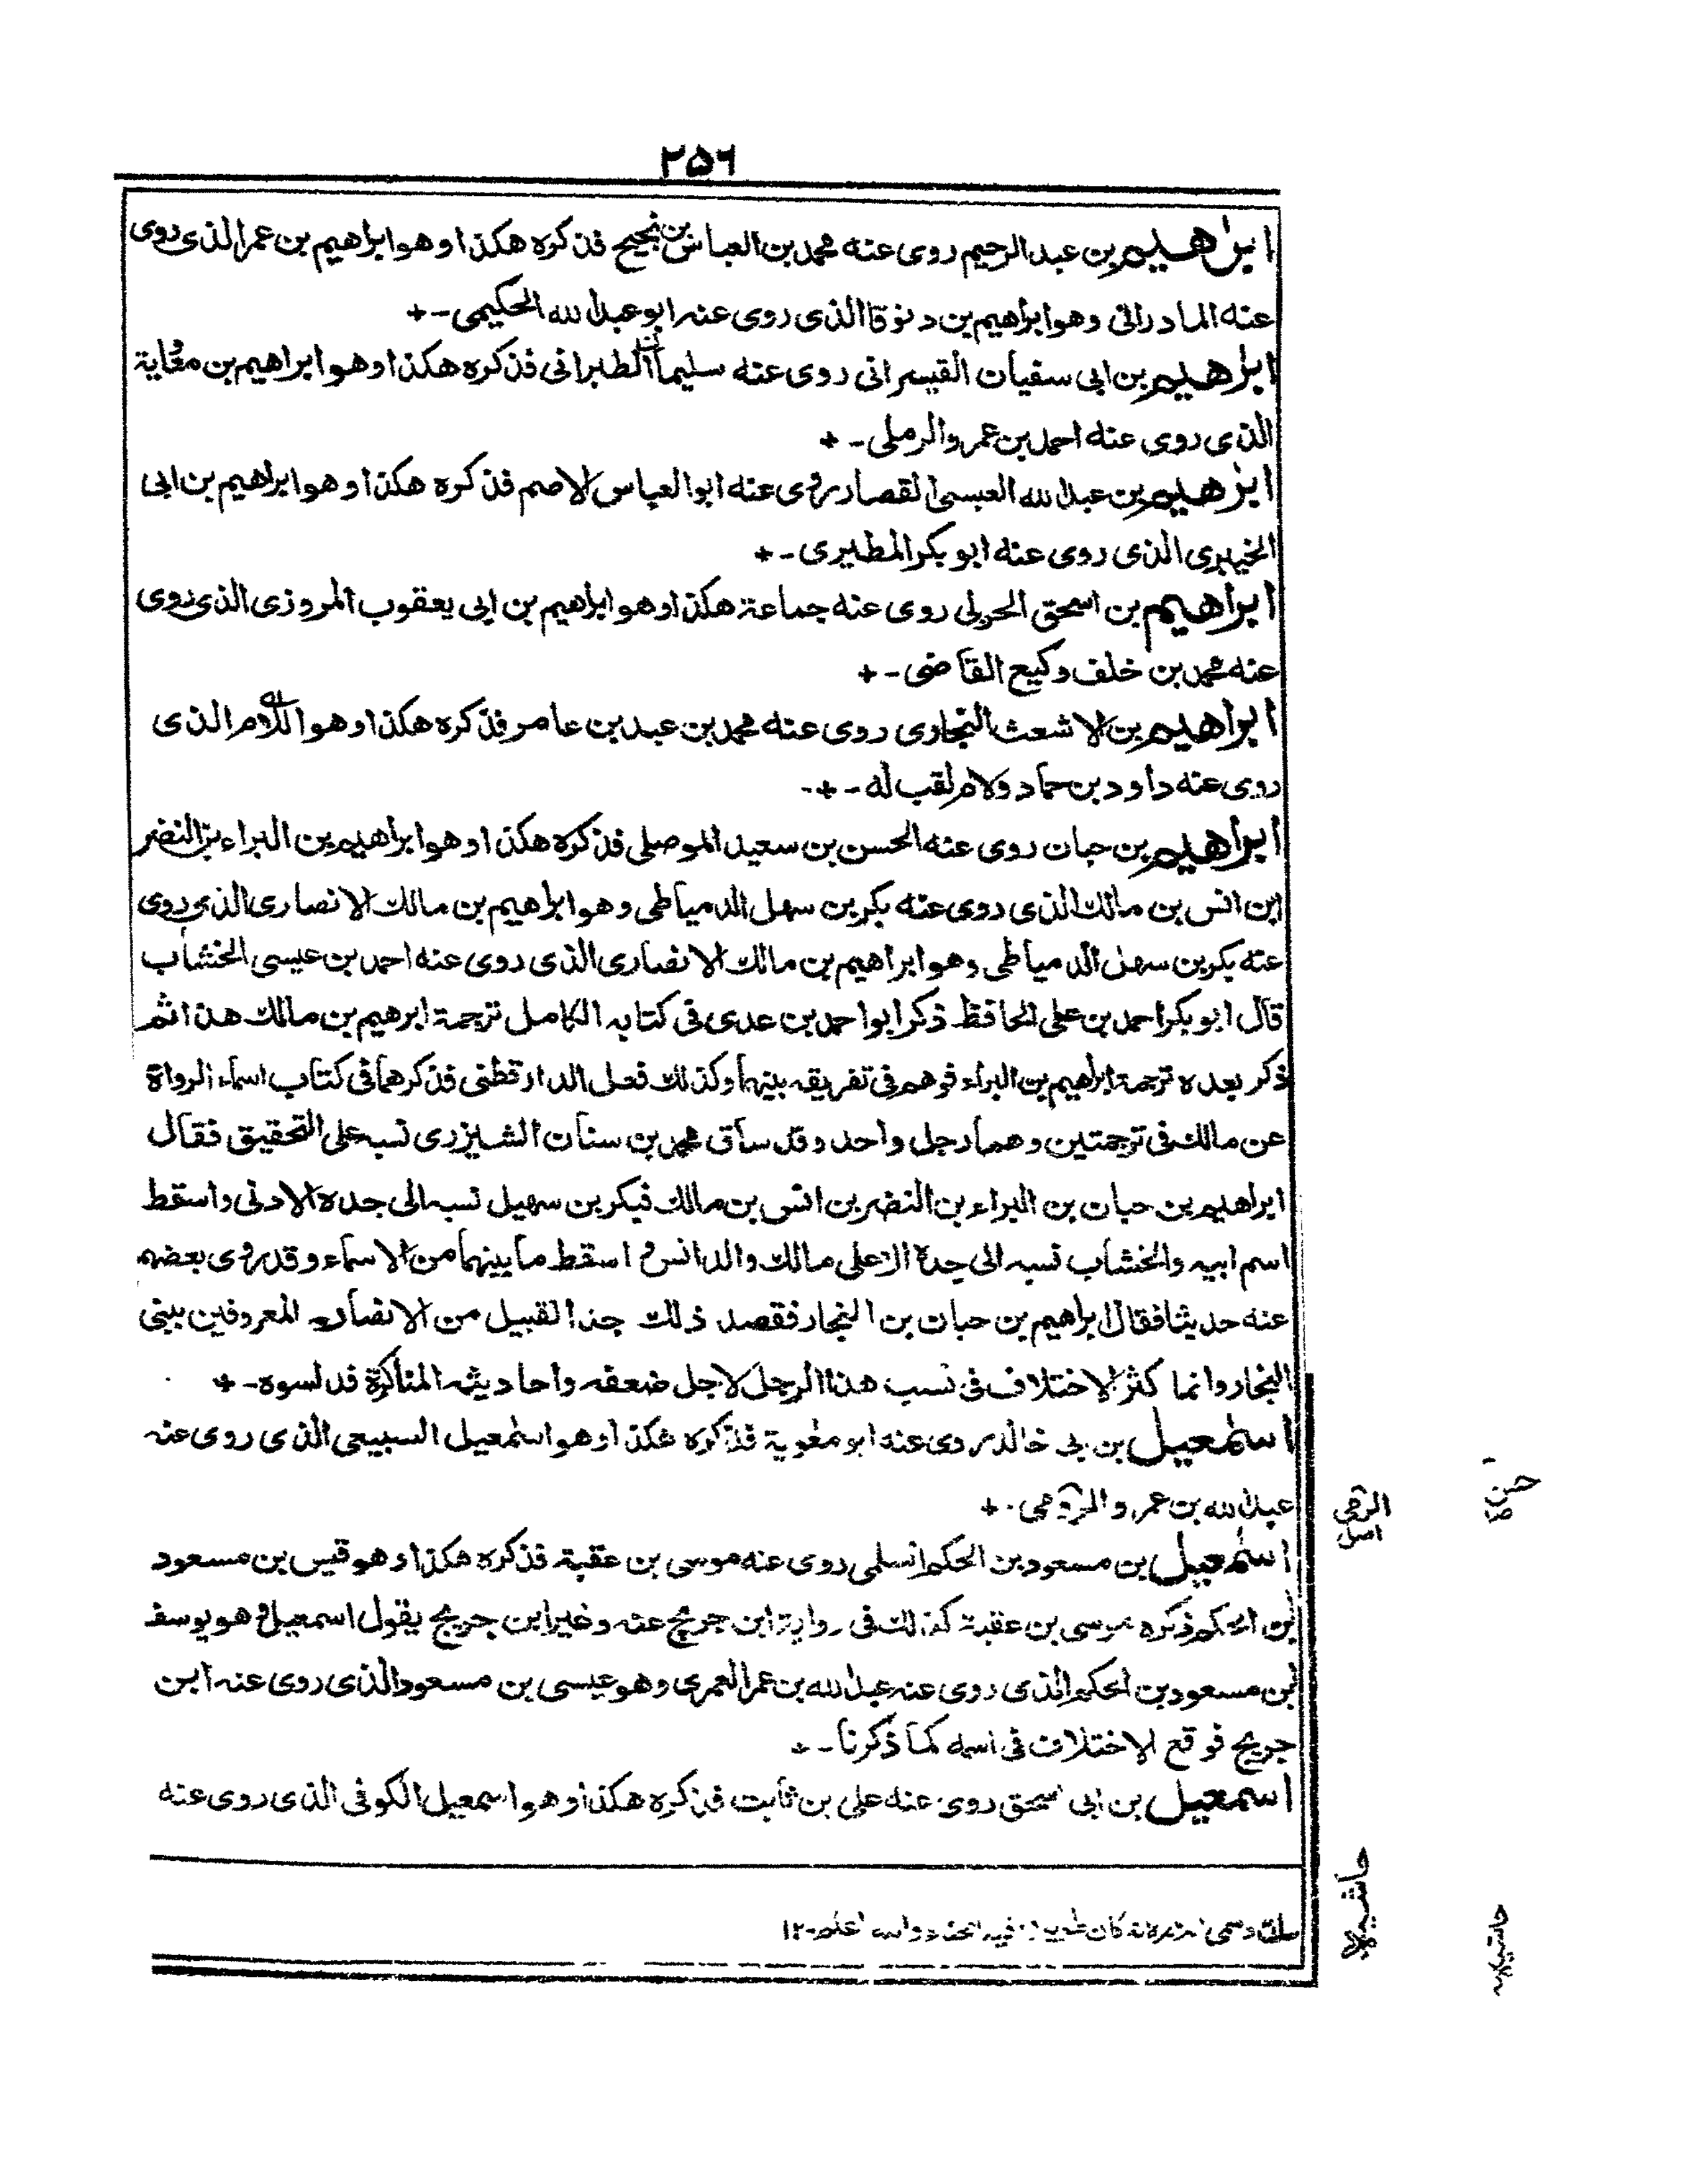 ٢٥٦
ابراهيم بن عبد الرحيم روى عنه محمد بن العباس بن نجيح فذكره هكذا وهو ابراهيم بن عمر الذى روى
عنه المادرائى وهو ابراهيم بن دنوقا الذى روى عنه ابو عبد الله الحكيمى -+
ابرٰهيم بن ابى سفيان القيسرانى روى عنه سليمان الطبرانى فذكره هكذا وهو ابراهيم بن معٰوية
الذى روى عنه احمد بن عمرو الرملى -+
ابرٰهيم بن عبد الله العبسى القصار روى عنه ابو العباس الاصم فذكره هكذا وهو ابراهيم بن ابى
الخيبرى الذى روى عنه ابو بكر المطيرى -+
ابراهيم بن اسحق الحربى روى عنه جماعة هكذا وهو ابراهيم بن ابى يعقوب المروزى الذى روى
عنه محمد بن خلف وكيع القاضى -+
ابراهيم بن الاشعث البخارى روى عنه محمد بن عبد بن عامر فذكره هكذا وهو اللام الذى
روى عنه داود بن حماد ولام لقب له -+-
ابراهيم بن حبان روى عنه الحسن بن سعيد الموصلى فذكره هكذا وهو ابراهيم بن البراء بن النضر
ابن انس بن مالك الذى روى عنه بكر بن سهل الدمياطى وهو ابراهيم بن مالك الانصارى الذى روى
عنه بكر بن سهل الدمياطى وهو ابراهيم بن مالك الانصارى الذى روى عنه احمد بن عيسى الخشاب
قال ابو بكر احمد بن على الحافظ ذكر ابو احمد بن عدى فى كتابه الكامل ترجمة ابرهيم بن مالك هذا ثم
ذكر بعده ترجمة ابراهيم بن البراء فوهم فى تفريقه بينهما وكذلك فعل الدارقطنى فذكرهما فى كتاب اسماء الرواة
عن مالك فى ترجمتين وهما رجل واحد وقد ساق محمد بن سنان الشيزرى نسبه على التحقيق فقال
ابراهيم بن حبان بن البراء بن النضر بن انس بن مالك فبكر بن سهيل نسبه الى جده الادنى واسقط
اسم ابيه والخشاب نسبه الى جده الاعلى مالك والد انس و اسقط ما بينهما من الاسماء وقد روى بعضهم
عنه حديثا فقال ابراهيم بن حبان بن النجار فقصد ذلك جذا لقبيل من الانصار المعروفين ببنى
النجار وانما كثر الاختلاف فى نسب هذا الرجل لاجل ضعفه واحاديثه المناكرة فدلسوه -+
اسمٰعيل بن بى خالد روى عنه ابو معٰوية فذكره هكذا وهو اسمٰعيل السبيعى الذى روى عنه
عبد الله بن عمرو الرومى -+
الرقى
اصل
حسن
اسمٰعيل بن مسعود بن الحكم السلمى روى عنه موسى بن عقبة فذكره هكذا وهو قيس بن مسعود
بن الحكم ذكره موسى بن عقبة كذلك فى رواية ابن جريج عنه وغير ابن جريج يقول اسمعيل وهو يوسف
ابن مسعود بن الحكم الذى روى عنه عبد الله بن عمر العمرى وهو عيسى بن مسعود الذى روى عنه ابن
جريج فوقع الاختلاف فى اسمه كما ذكرنا -+
اسمعيل بن ابى اسحق روى عنه على بن ثابت فذكره هكذا وهو اسمعيل الكوفى الذى روى عنه
حاشيه
كان والله اعلم -١٢